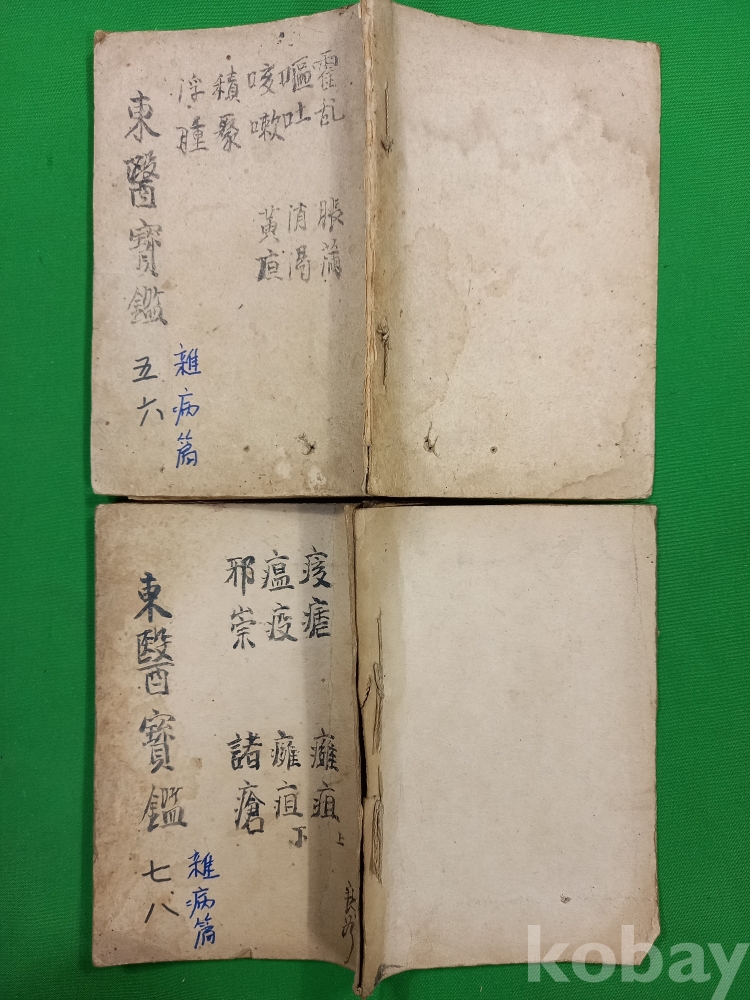 霍乱
嘔吐
咳嗽
積聚
浮腫
脹滿
消渴
黃疸
雜病篇
東醫寶鑑 五六
痎瘧
瘟疫
邪崇
癰疽 上
癰疽 下
諸瘡
雜病篇
東醫寶鑑 七八
kobay